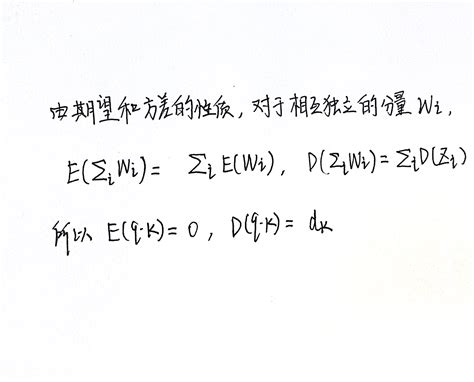 由期望和方差的性质，对于相互独立的分量 Wi，
E(Σi Wi) = Σi E(Wi)，D(Σi Wi) = Σi D(Zi)
所以 E(q·k) = 0，D(q·k) = dk